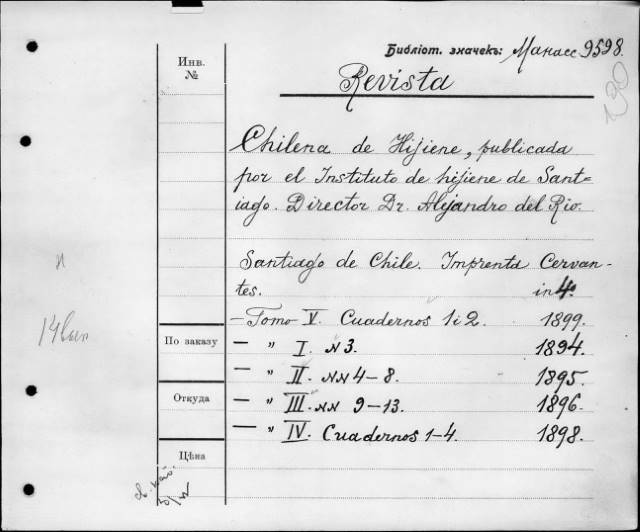 Библіот. значекъ: Манасс 9598.
130
Инв.
№
Revista
Chilena de Hijiene, publicada
por el Instituto de hijiene de Sant=
iago. Director Dr. Alejandro del Rio.
Santiago de Chile. Imprenta Cervan-
tes. in 4º
- Tomo V. Cuadernos 1 i 2. 1899.
По заказу
— " I. N 3. 1894.
— " II. NN 4-8. 1895.
Откуда
— " III. NN 9-13. 1896.
— " IV. Cuadernos 1-4. 1898.
Цѣна
14 вып